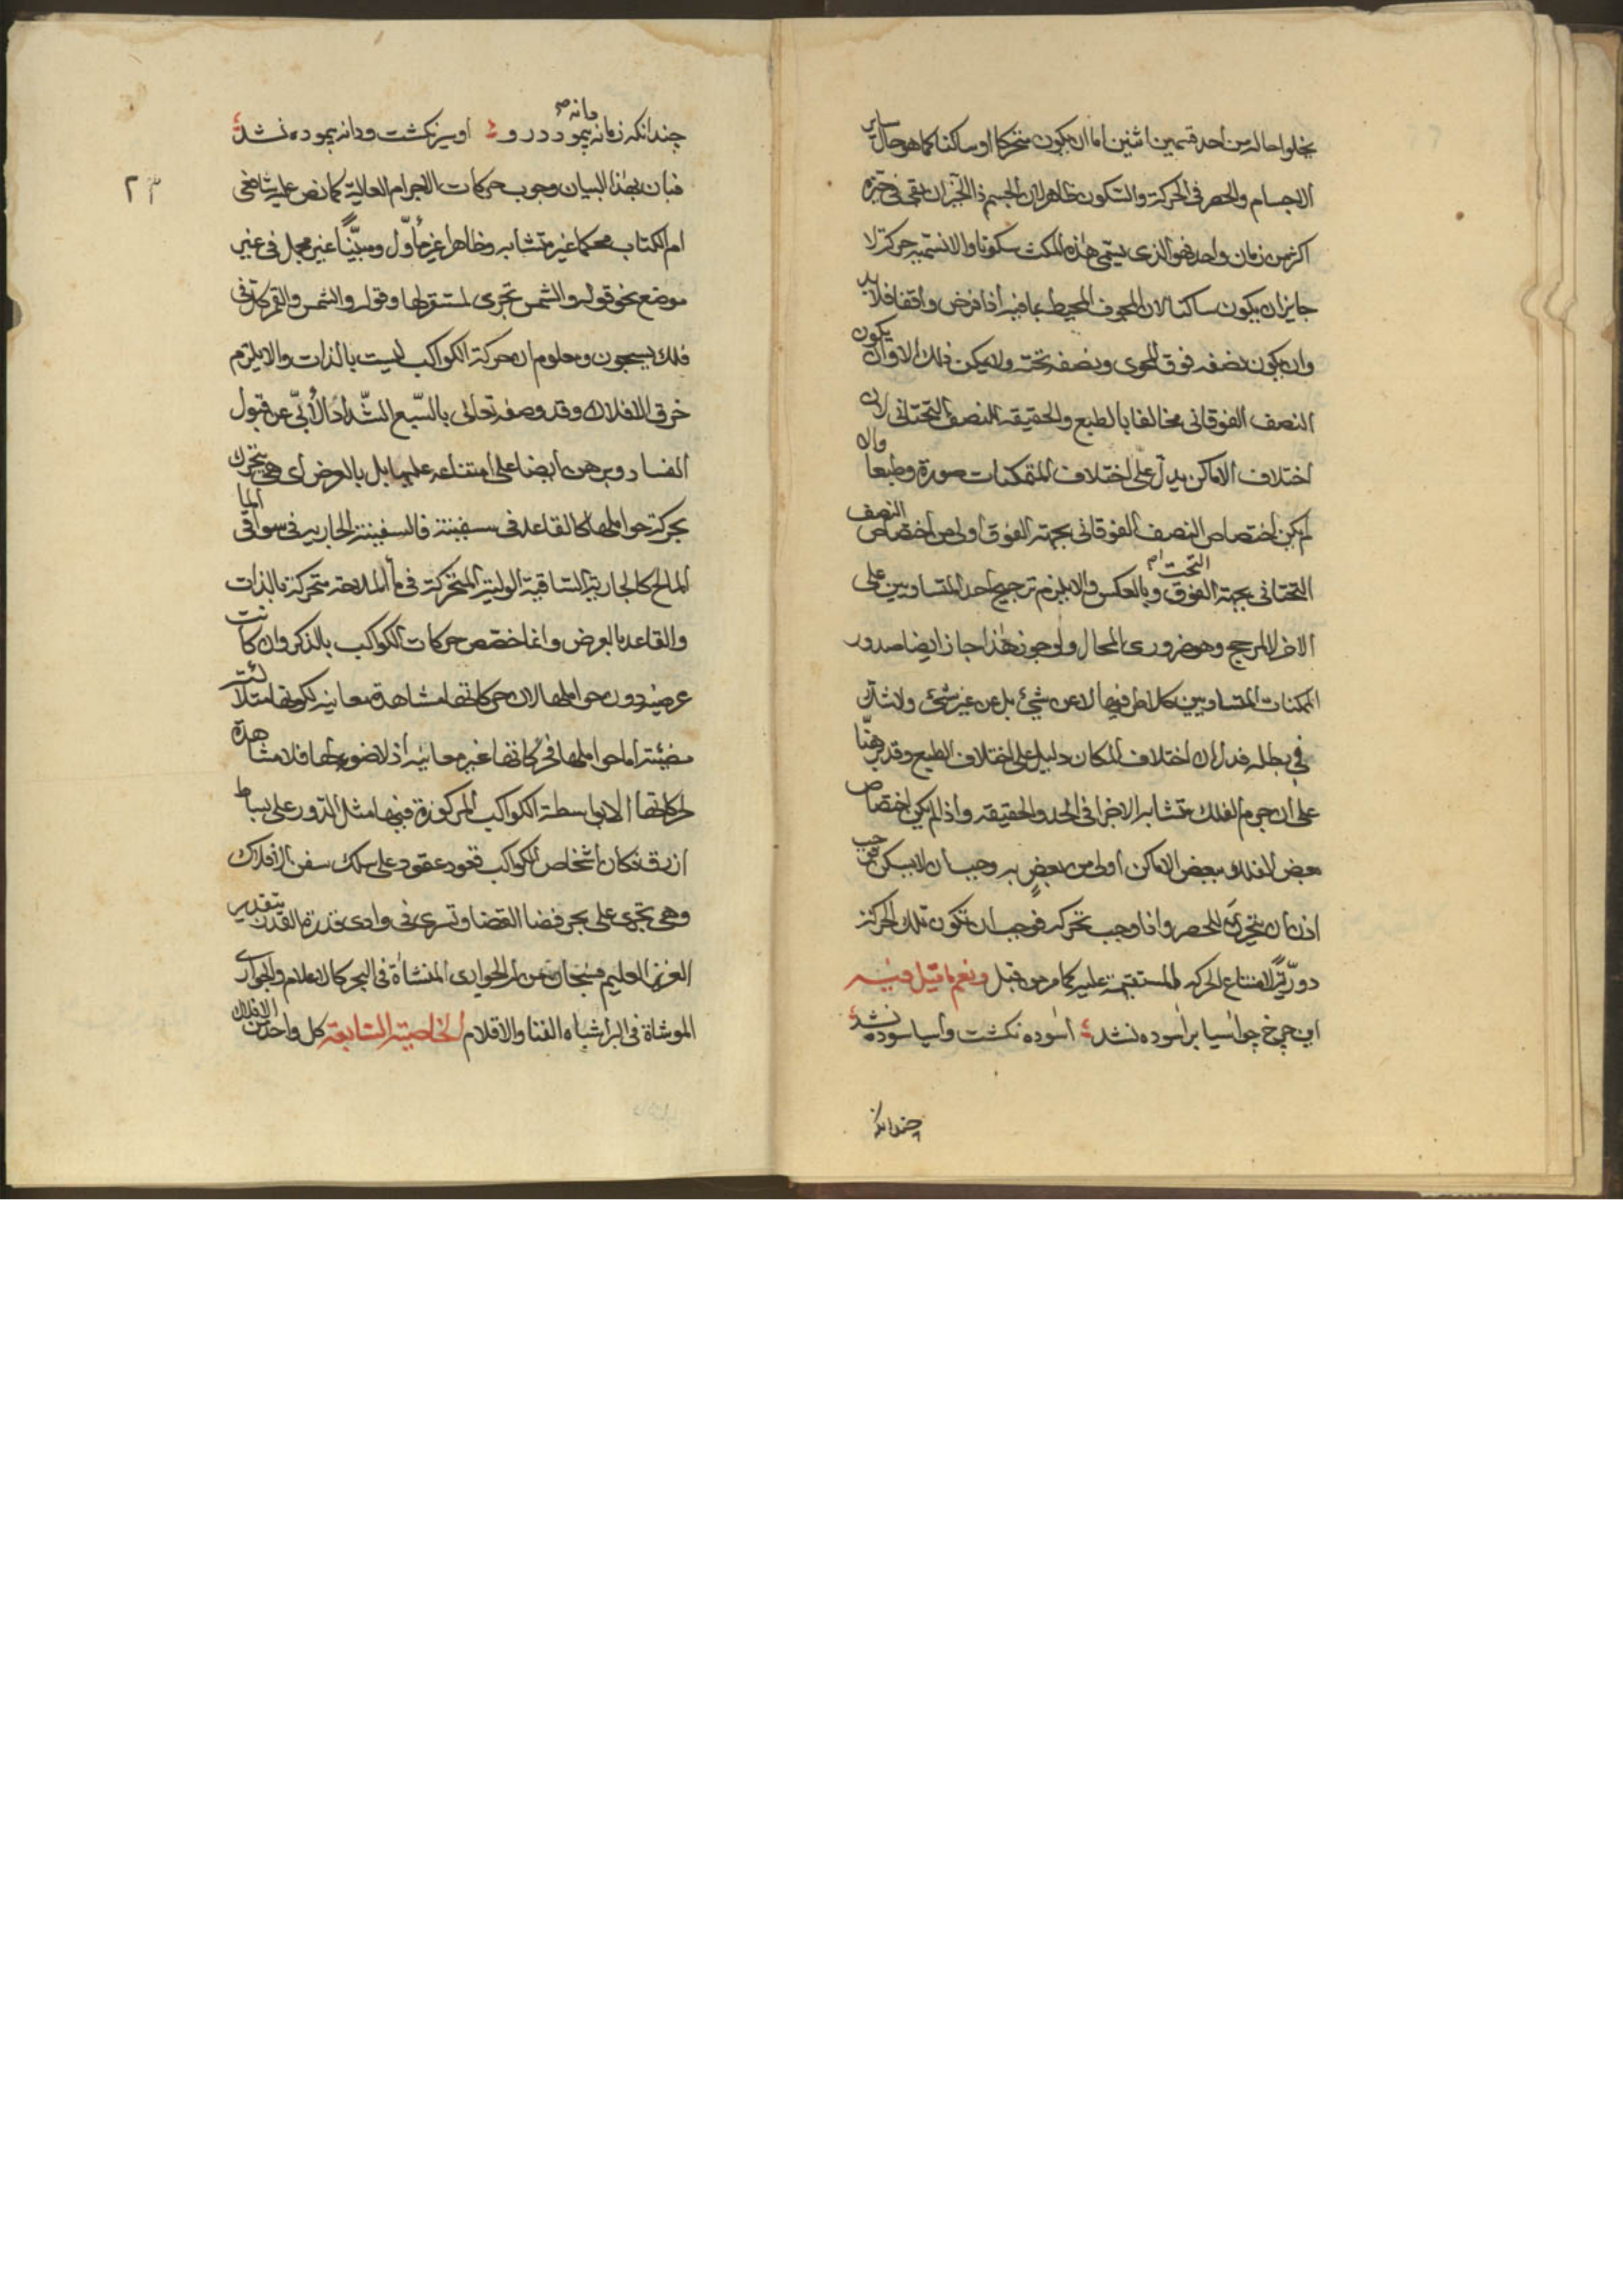 يخلوا حاله من احد قسمين اثنين اما ان يكون متحركا او ساكنا كما هو حال ساير
الاجسام والحصر في الحركة والسكون ظاهر لان الجسم ذا الحيز ان بقى في حيزه
اكثر من زمان واحد فهو الذي يسمى هذه المكث سكونا والا نسميه حركة لا
جايز ان يكون ساكنا لان المجوف المحيط بما فيه اذا فرض واقفا فلا بد
وان يكون نصفه فوق المحوى ونصفه تحته ولا يمكن ذلك الا وان يكون
النصف الفوقاني مخالفا بالطبع والحقيقه النصف التحتاني لان
اختلاف الاماكن يدل على اختلاف المتمكنات صورة وطبعا والا
لم يكن اختصاص النصف الفوقاني بجهة الفوق اولى من اختصاص النصف
التحتاني بجهة الفوق وبالعكس والا يلزم ترجيح احد المتساويين على
الاخر لا لمرجح وهو ضروري المحال ولو جوز هذا جاز ايضا صدور
الممكنات المتساويين كلا طرفيها لا عن شيئ بل عن غير شيئ ولا شك
في بطله فدل ان اختلاف المكان دليل على اختلاف الطبع وقد برهنّا
على ان جرم الفلك متشابه الاجزا في الحد والحقيقه واذا لم يكن اختصاص
بعض الفلك ببعض الاماكن اولى من بعض به وجب ان لا يسكن فوجب
اذن ان يتحرك للحصر واذا وجب تحركه فوجب ان تكون تلك الحركة
دوريّةً لامتناع الحركه المستقيمة عليه كما مر من قبل ونعم ما قيل فيه
اين چرخ چو آسيا برآسوده نشد آسوده نگشت وآسيا سوده نشد
چندانكه
چندانكه زمانه پيمود درو دانه او سير نگشت ودانه پيموده نشد
فبان بهذا البيان وجوب حركات الاجرام العالية كما نص عليه تعالى في
ام الكتاب محكما غير متشابه وظاهرا غير مأوّل ومبيّنًا غير مجمل في غير
موضع نحو قوله والشمس تجري لمستقر لها وقوله والشمس والقمر كل في
فلك يسبحون ومعلوم ان حركة الكواكب ليست بالذات والا يلزم
خرق الافلاك وقد وصفه تعالى بالسّبع الشّداد الأبيّ عن قبول
الفساد وبرهن ايضا على امتناعه عليها بل بالعرض اى هي تتحرك
بحركة حواملها كالقاعد في سفينة فالسفينة الجاريه في سواقى الما
المالح كالجارية الساقية المتحركة في ماء الملاحة متحركة بالذات
والقاعد بالعرض وانما خصص حركات الكواكب بالذكر وان كانت
عرضية دون حواملها لان حركاتها مشاهدة معاينه لكونها متلألئة
مضيئة اما حواملها فحركاتها غير معاينه اذ لا ضوء لها فلا مشاهدة
لحركاتها الا بواسطة الكواكب المركوزة فيها مثل الدرر على بساط
ازرق فكان اشخاص الكواكب قعود عقود على سلك سفن الافلاك
وهي تجرى على بحر فضا القضا وتسرى في وادى قدرة القدر بتقدير
العزيز العليم فسبحان من له الجوارى المنشأة في البحر كالاعلام والجوارى
الموشاة في البر اشباه القنا والاقلام الخاصية السابعة كل واحد من الافلاك
٢٣